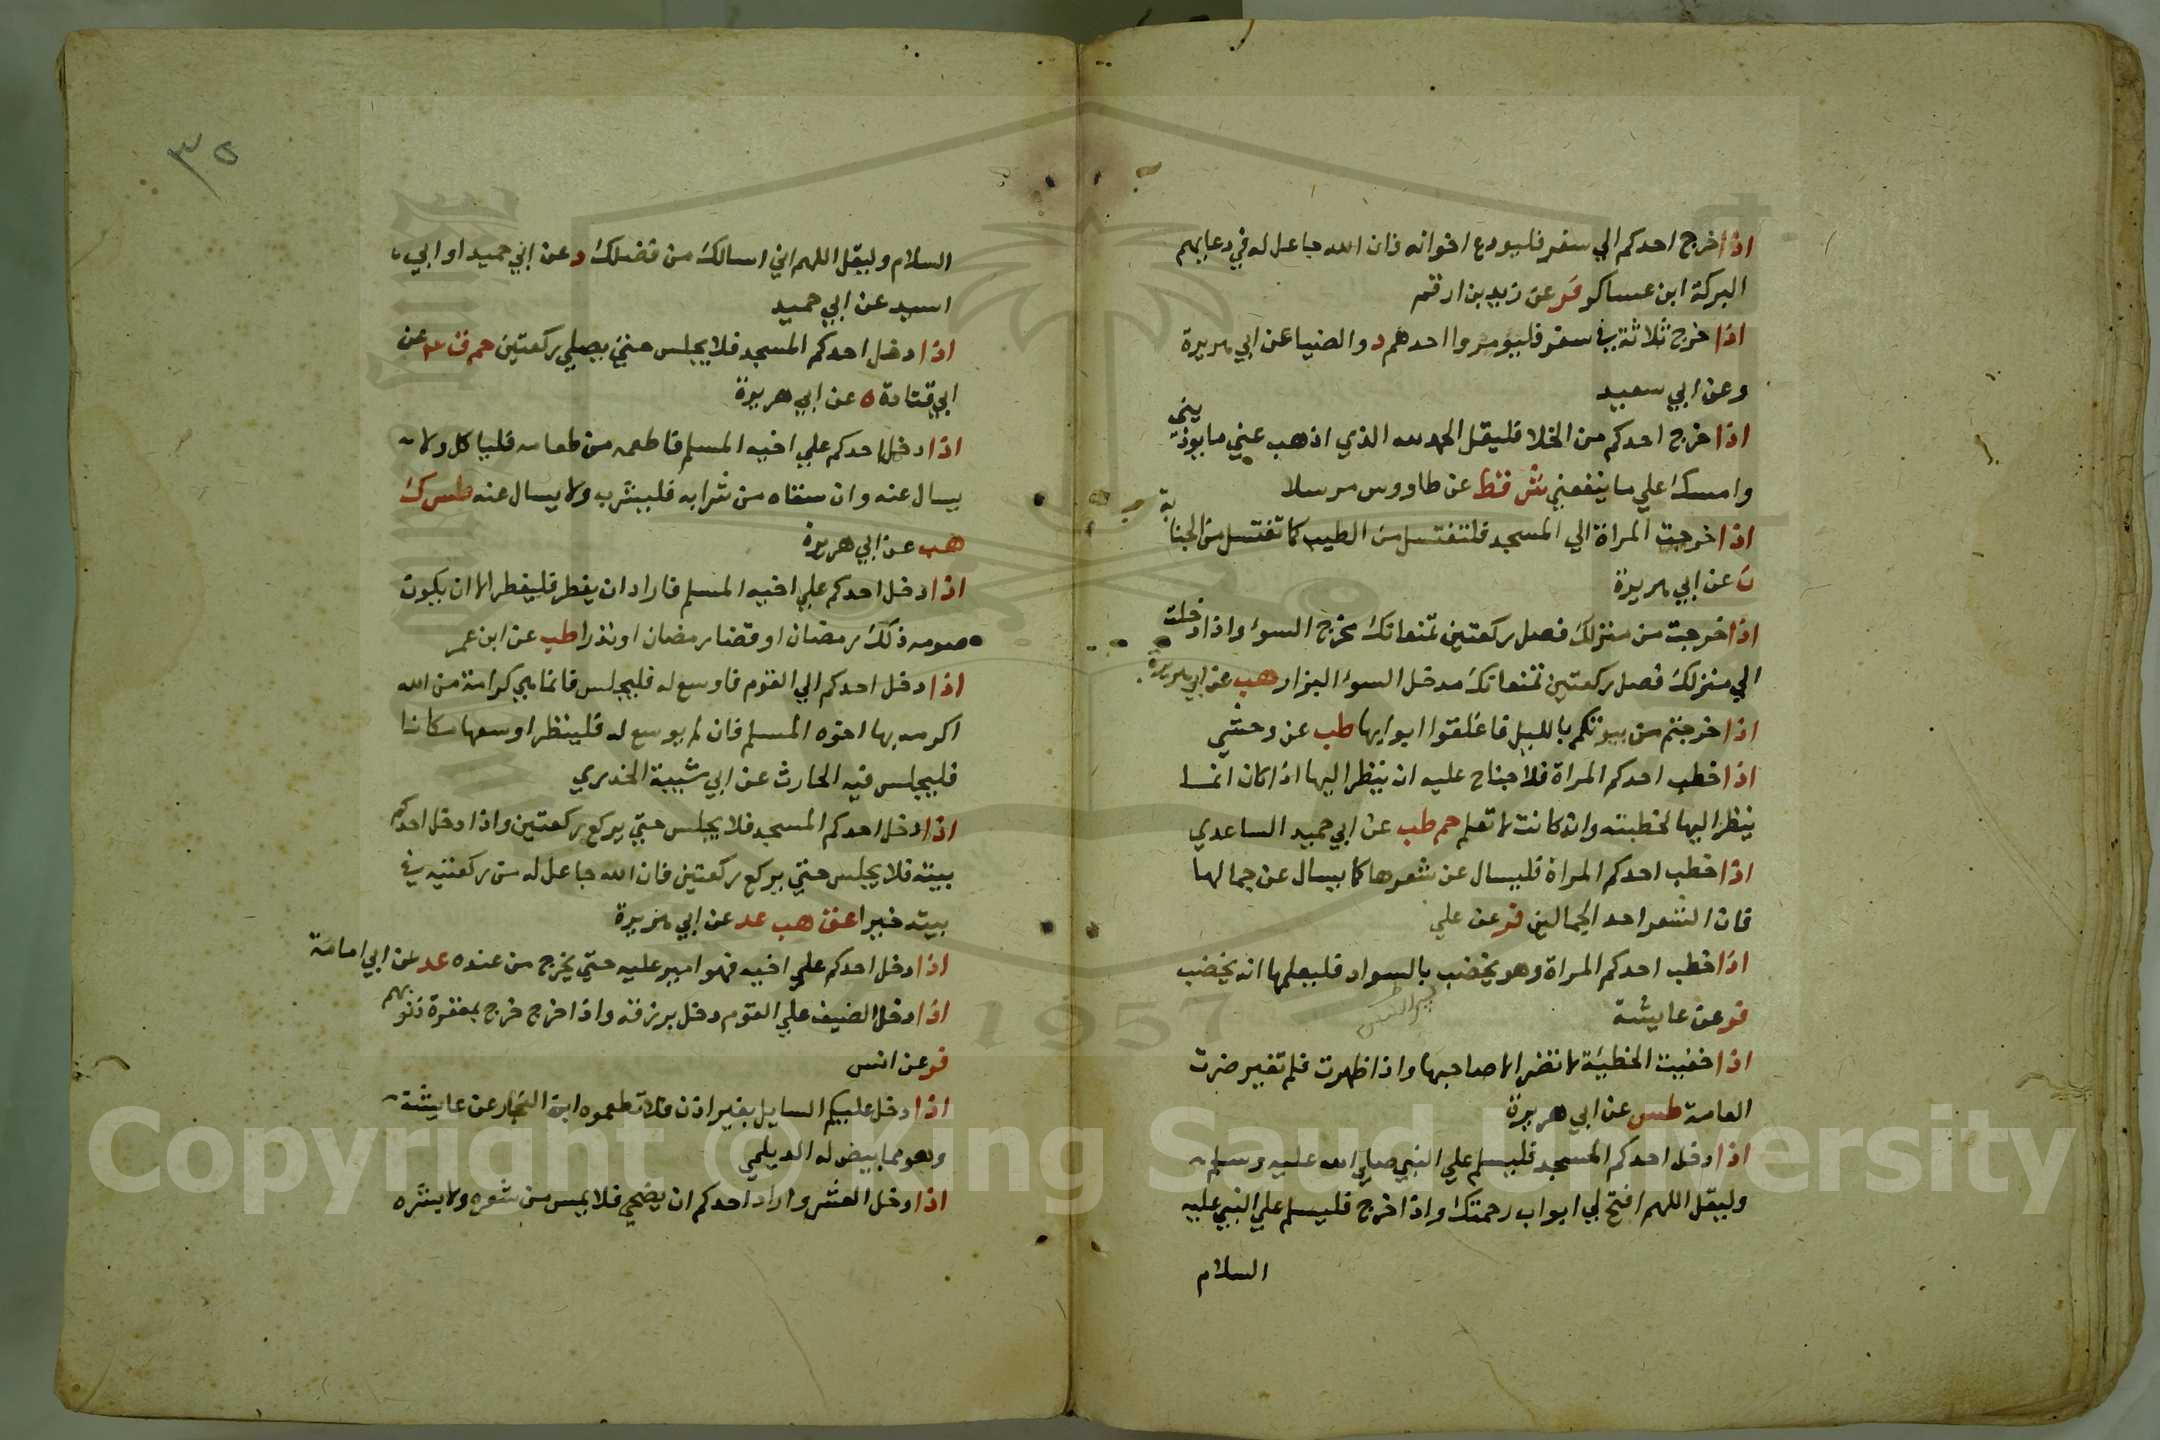 اذا خرج احدكم الي سفر فليودع اخوانه فان الله جاعل له في دعايهم
البركة ابن عساكر فر عن زيد بن ارقم
اذا خرج ثلاثة في سفر فليؤمروا احدهم د والضيا عن ابي هريرة
وعن ابي سعيد
اذا خرج احدكم من الخلا فليقل الحمد لله الذي اذهب عني ما يوذيني
وامسك علي ما ينفعني ش قط عن طاووس مرسلا
اذا خرجت المراة الي المسجد فلتغتسل من الطيب كما تغتسل من الجنابة
ن عن ابي هريرة
اذا خرجت من منزلك فصل ركعتين تمنعانك مخرج السوء واذا دخلت
الي منزلك فصل ركعتين تمنعانك مدخل السوء البزار هب عن ابي هريرة
اذا خرجتم من بيوتكم بالليل فاغلقوا ابوابها طب عن وحشي
اذا خطب احدكم المراة فلا جناح عليه ان ينظر اليها اذا كان انما
ينظر اليها لخطبته وان كانت لا تعلم حم طب عن ابي حميد الساعدي
اذا خطب احدكم المراة فليسال عن شعرها كما يسال عن جمالها
فان الشعر احد الجمالين فر عن علي
اذا خطب احدكم المراة وهو يخضب بالسواد فليعلمها انه يخضب
فر عن عايشة
اذا خفيت الخطيئة لا تضر الا صاحبها واذا ظهرت فلم تغير ضرت
العامة طس عن ابي هريرة
اذا دخل احدكم المسجد فليسلم علي النبي صلي الله عليه وسلم
وليقل اللهم افتح لي ابواب رحمتك واذا خرج فليسلم علي النبي عليه
السلام
٣٥
السلام وليقل اللهم اني اسالك من فضلك د عن ابي حميد او ابي
اسيد عن ابي حميد
اذا دخل احدكم المسجد فلا يجلس حتي يصلي ركعتين حم ق ٤ عن
ابي قتادة ه عن ابي هريرة
اذا دخل احدكم علي اخيه المسلم فاطعمه من طعامه فلياكل ولا
يسال عنه وان سقاه من شرابه فليشرب ولا يسال عنه طس ك
هب عن ابي هريرة
اذا دخل احدكم علي اخيه المسلم فاراد ان يفطر فليفطر الا ان يكون
صومه ذلك رمضان او قضا رمضان او نذرا طب عن ابن عمر
اذا دخل احدكم الي القوم فاوسع له فليجلس فانما هي كرامة من الله
اكرمه بها اخوه المسلم فان لم يوسع له فلينظر اوسعها مكانا
فليجلس فيه الحارث عن ابي شيبة الخدري
اذا دخل احدكم المسجد فلا يجلس حتي يركع ركعتين واذا دخل احدكم
بيته فلا يجلس حتي يركع ركعتين فان الله جاعل له من ركعتيه في
بيته خيرا عق هب عد عن ابي هريرة
اذا دخل احدكم علي اخيه فهو امير عليه حتي يخرج من عنده عد عن ابي امامة
اذا دخل الضيف علي القوم دخل برزقه واذا خرج خرج بمغفرة ذنوبهم
فر عن انس
اذا دخل عليكم السايل بغير اذن فلا تطعموه ابن النجار عن عايشة
وهو مما بيض له الديلمي
اذا دخل العشر واراد احدكم ان يضحي فلا يمس من شعره ولا بشره
Copyright © King Saud University
1957